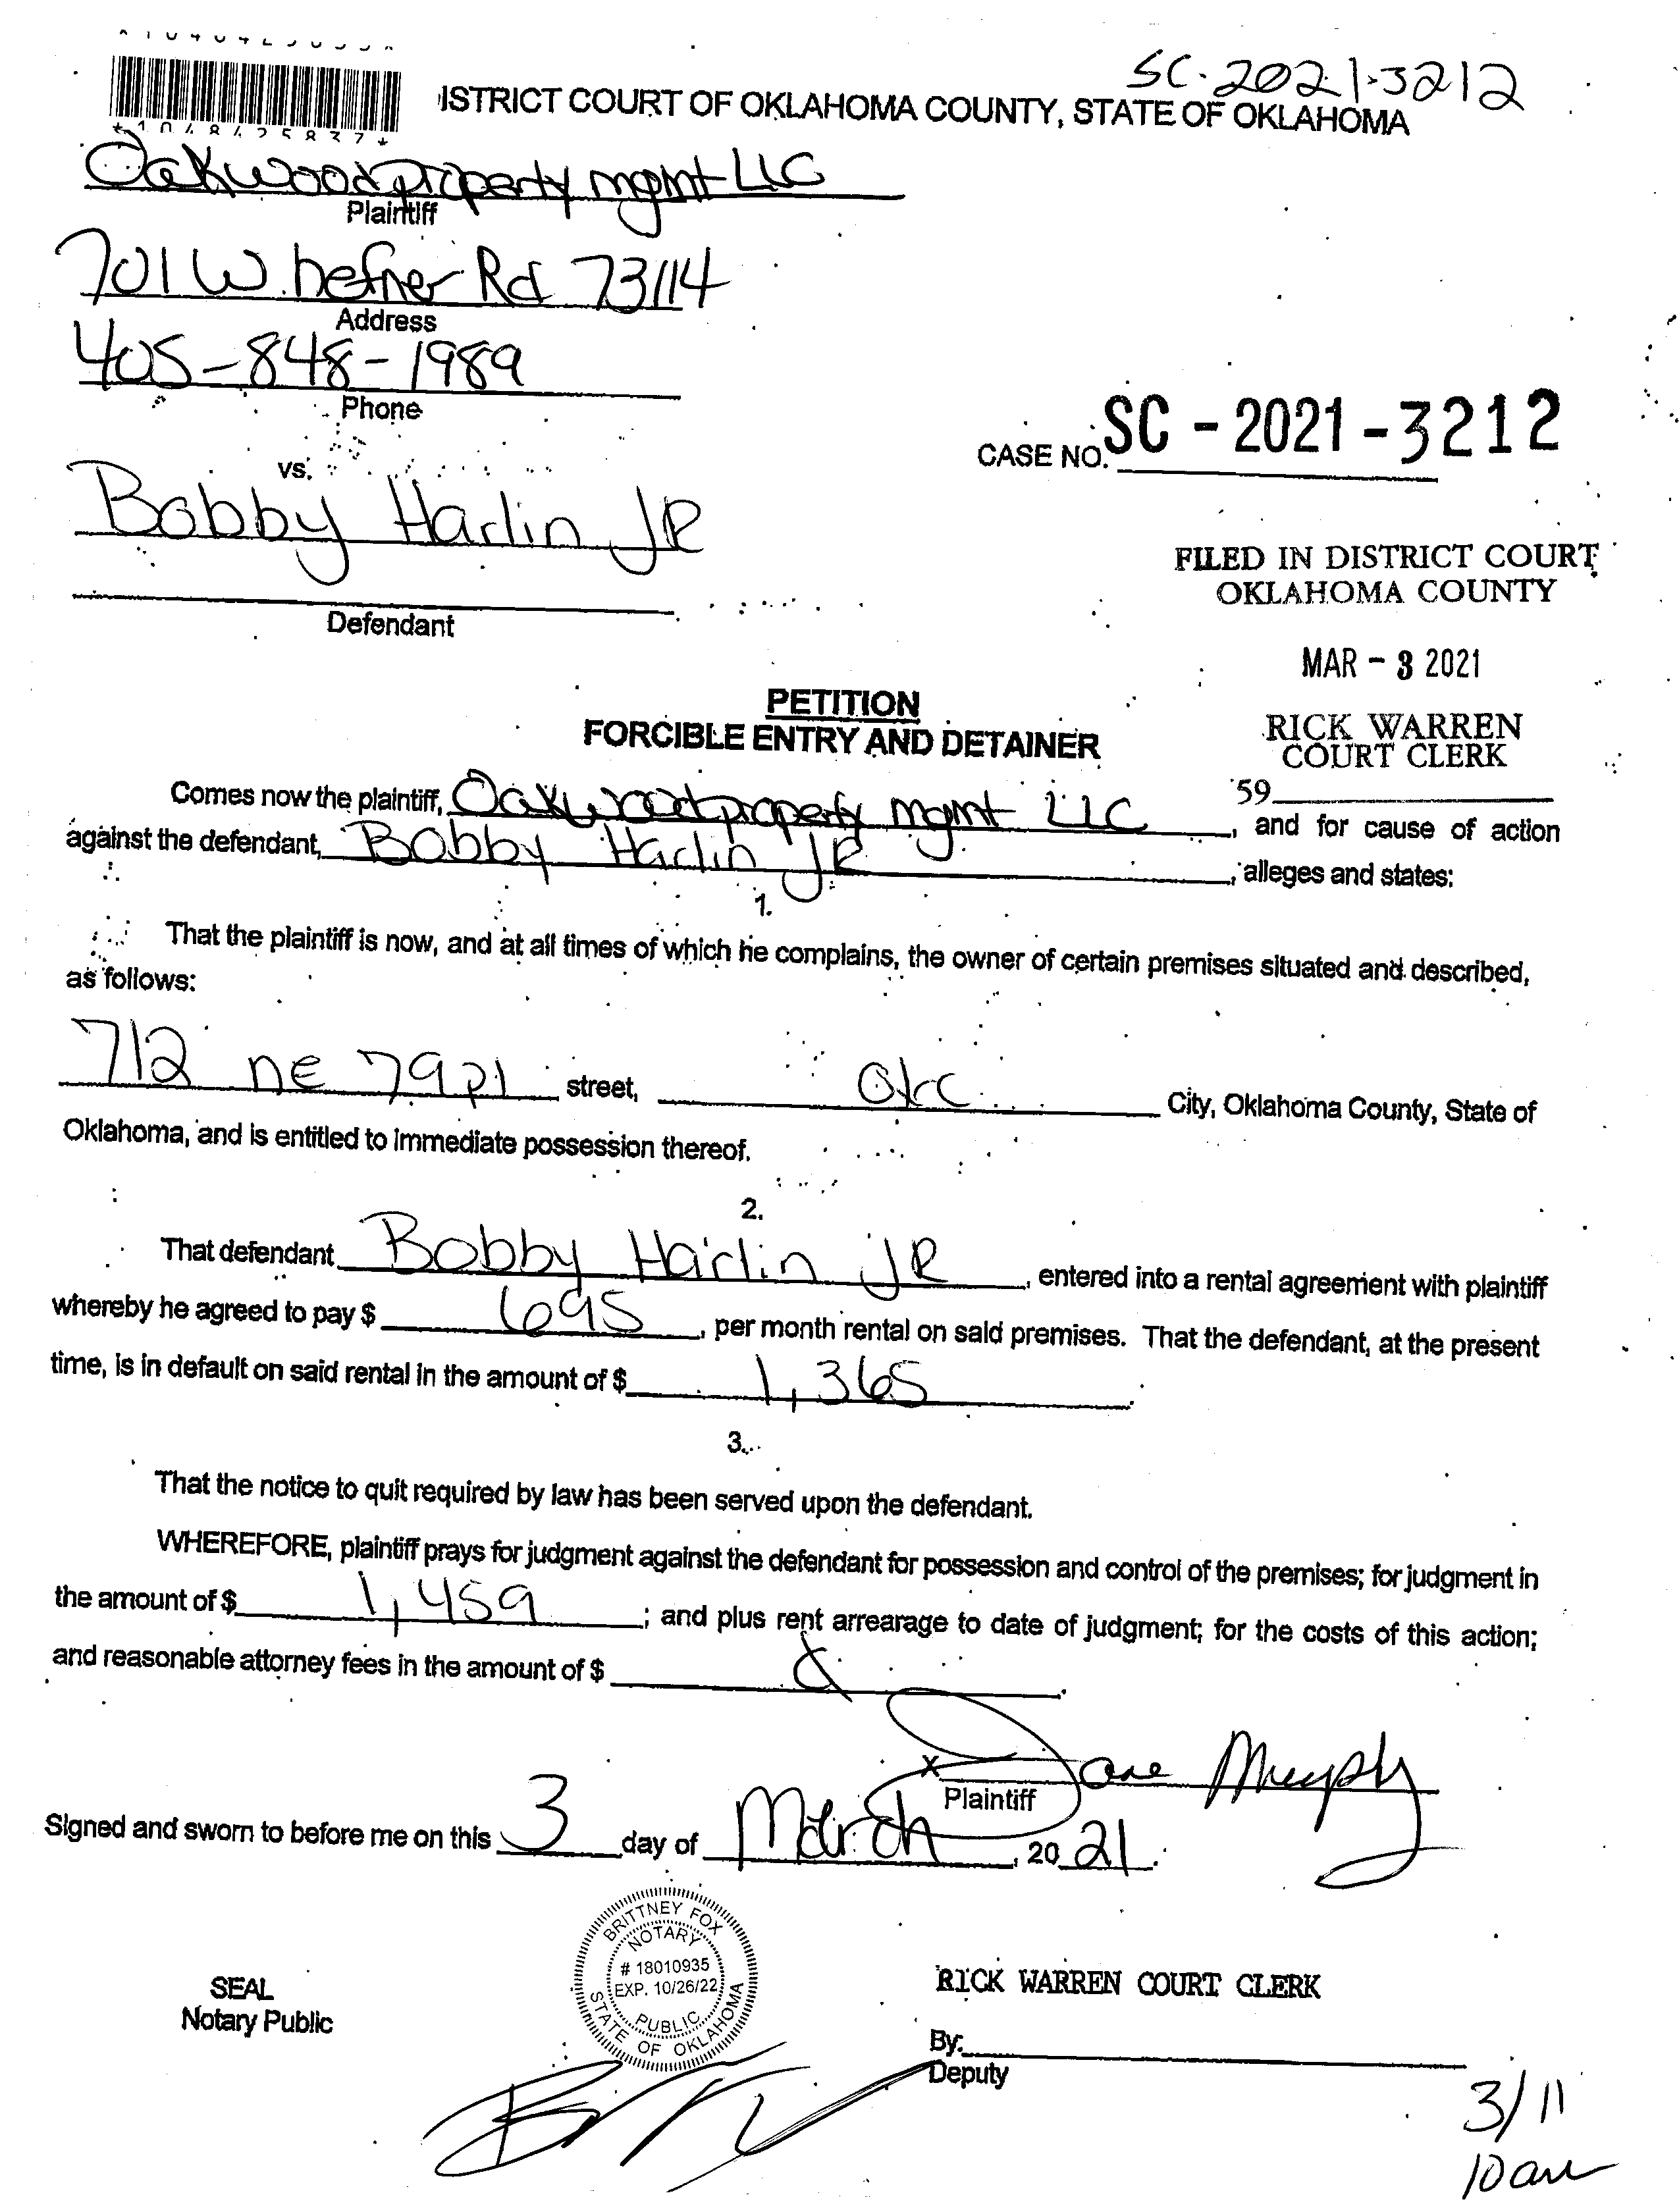 SC-2021-3212
*1048425837*
ISTRICT COURT OF OKLAHOMA COUNTY, STATE OF OKLAHOMA
Oakwood property mgmt LLC
Plaintiff
701 W. hefner Rd 73114
Address
405-848-1989
Phone
CASE NO. SC - 2021 - 3212
vs.
Bobby Harlin JR
FILED IN DISTRICT COURT
OKLAHOMA COUNTY
Defendant
MAR - 3 2021
PETITION
FORCIBLE ENTRY AND DETAINER
RICK WARREN
COURT CLERK
59
Comes now the plaintiff, Oakwood property mgmt LLC, and for cause of action
against the defendant, Bobby Harlin JR, alleges and states:
1.
That the plaintiff is now, and at all times of which he complains, the owner of certain premises situated and described,
as follows:
712 NE 79 street, OKC City, Oklahoma County, State of
Oklahoma, and is entitled to immediate possession thereof.
2.
That defendant Bobby Harlin JR, entered into a rental agreement with plaintiff
whereby he agreed to pay $ 695, per month rental on said premises. That the defendant, at the present
time, is in default on said rental in the amount of $ 1,365.
3.
That the notice to quit required by law has been served upon the defendant.
WHEREFORE, plaintiff prays for judgment against the defendant for possession and control of the premises; for judgment in
the amount of $ 1,459; and plus rent arrearage to date of judgment; for the costs of this action;
and reasonable attorney fees in the amount of $
X Jane Murphy
Plaintiff
Signed and sworn to before me on this 3 day of March, 2021.
BRITTNEY FOX
NOTARY
# 18010935
EXP. 10/26/22
PUBLIC
STATE OF OKLAHOMA
SEAL
Notary Public
RICK WARREN COURT CLERK
By:
Deputy
3/11
10am